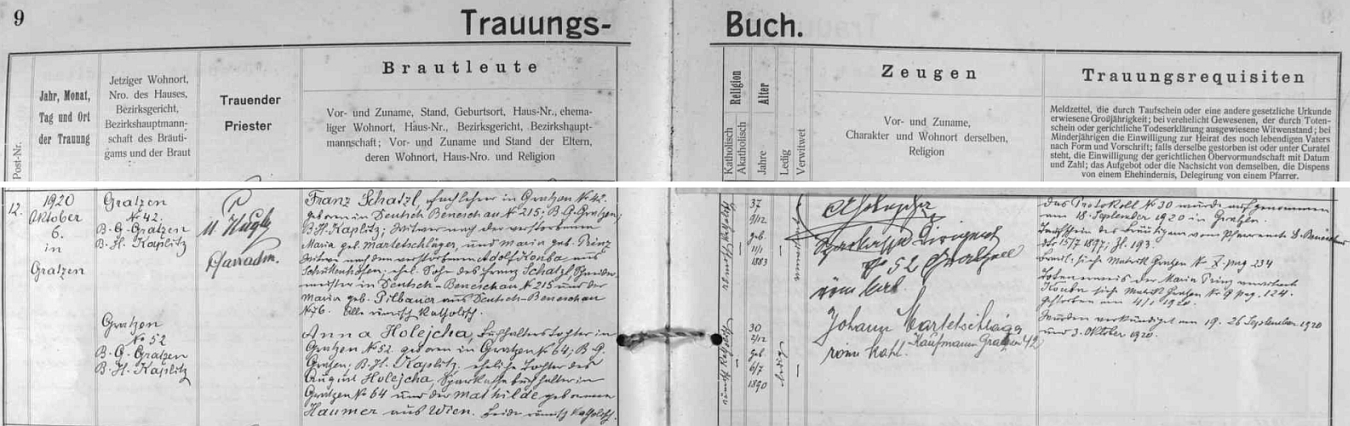 9
Trauungs-
Buch.
Post-Nr.
Jahr, Monat,
Tag und Ort
der Trauung
Jetziger Wohnort,
Nro. des Hauses,
Bezirksgericht,
Bezirkshauptmann-
schaft des Bräuti-
gams und der Braut
Trauender
Priester
Brautleute
Vor- und Zuname, Stand, Geburtsort, Haus-Nr., ehema-
liger Wohnort, Haus-Nr., Bezirksgericht, Bezirkshaupt-
mannschaft; Vor- und Zuname und Stand der Eltern,
deren Wohnort, Haus-Nro. und Religion
Religion
Katholisch
Akatholisch
Alter
Jahre
Ledig
Verwitwet
Zeugen
Vor- und Zuname,
Charakter und Wohnort derselben,
Religion
Trauungsrequisiten
Meldzettel, die durch Taufschein oder eine andere gesetzliche Urkunde
erwiesene Großjährigkeit; bei verehelicht Gewesenen, der durch Toten-
schein oder gerichtliche Todeserklärung ausgewiesene Witwenstand; bei
Minderjährigen die Einwilligung zur Heirat des noch lebendigen Vaters
nach Form und Vorschrift; falls derselbe gestorben ist oder unter Curatel
steht, die Einwilligung der gerichtlichen Obervormundschaft mit Datum
und Zahl; das Aufgebot oder die Nachsicht von demselben, die Dispens
von einem Ehehindernis, Delegirung von einem Pfarrer.
12.
1920
Oktober
6.
in
Gratzen
Gratzen
N 42.
B. G. Gratzen
B. H. Kaplitz
Gratzen
No 52
B. G. Gratzen
B. H. Kaplitz
Pfarradm.
Franz Schatzl, Fachlehrer in Gratzen N 42.
geboren in Deutsch Beneschau N 215; B. G. Gratzen,
B. H. Kaplitz; Witwer nach der verstorbenen
Maria geb. Martetschläger, und Maria geb. Prinz
Witwe nach dem verstorbenen Adolf Konba aus
ehel. Sohn des Franz Schatzl, Schneider-
meister in Deutsch-Beneschau N 215 und der
Maria geb. Pilbauer aus Deutsch-Beneschau
N 76. Alle römisch katholisch.
Anna Holejcha, Buchhalterstochter in
Gratzen N 52, geboren in Gratzen N 64; B. G.
Gratzen; B. H. Kaplitz, eheliche Tochter des
August Holejcha, Sparkassebuchhalter in
Gratzen No 64 und der Mathilde geborenen
Haumer aus Wien. Beide römisch katholisch.
römisch katholisch
37
9/12
geb.
11/1
1883
römisch katholisch
30
2/12
geb.
6/7
1890
ledig
N 52 Gratzen
röm. kath.
Johann Martetschläger
Kaufmann Gratzen 42
röm. kath.
Das Protokoll N 30 wurde aufgenommen
am 18. September 1920 in Gratzen.
Taufschein des Bräutigams vom Pfarramte D. Beneschau
dto 15/7 1897; Zl. 193.
Braut, sieh Matrik Gratzen N X pag. 234
Totenschein der Maria Prinz
sieh Matrik Gratzen N 9 pag. 124.
gestorben am 4/1 1920.
Wurden verkündigt am 19. 26 September 1920
und 3. Oktober 1920.